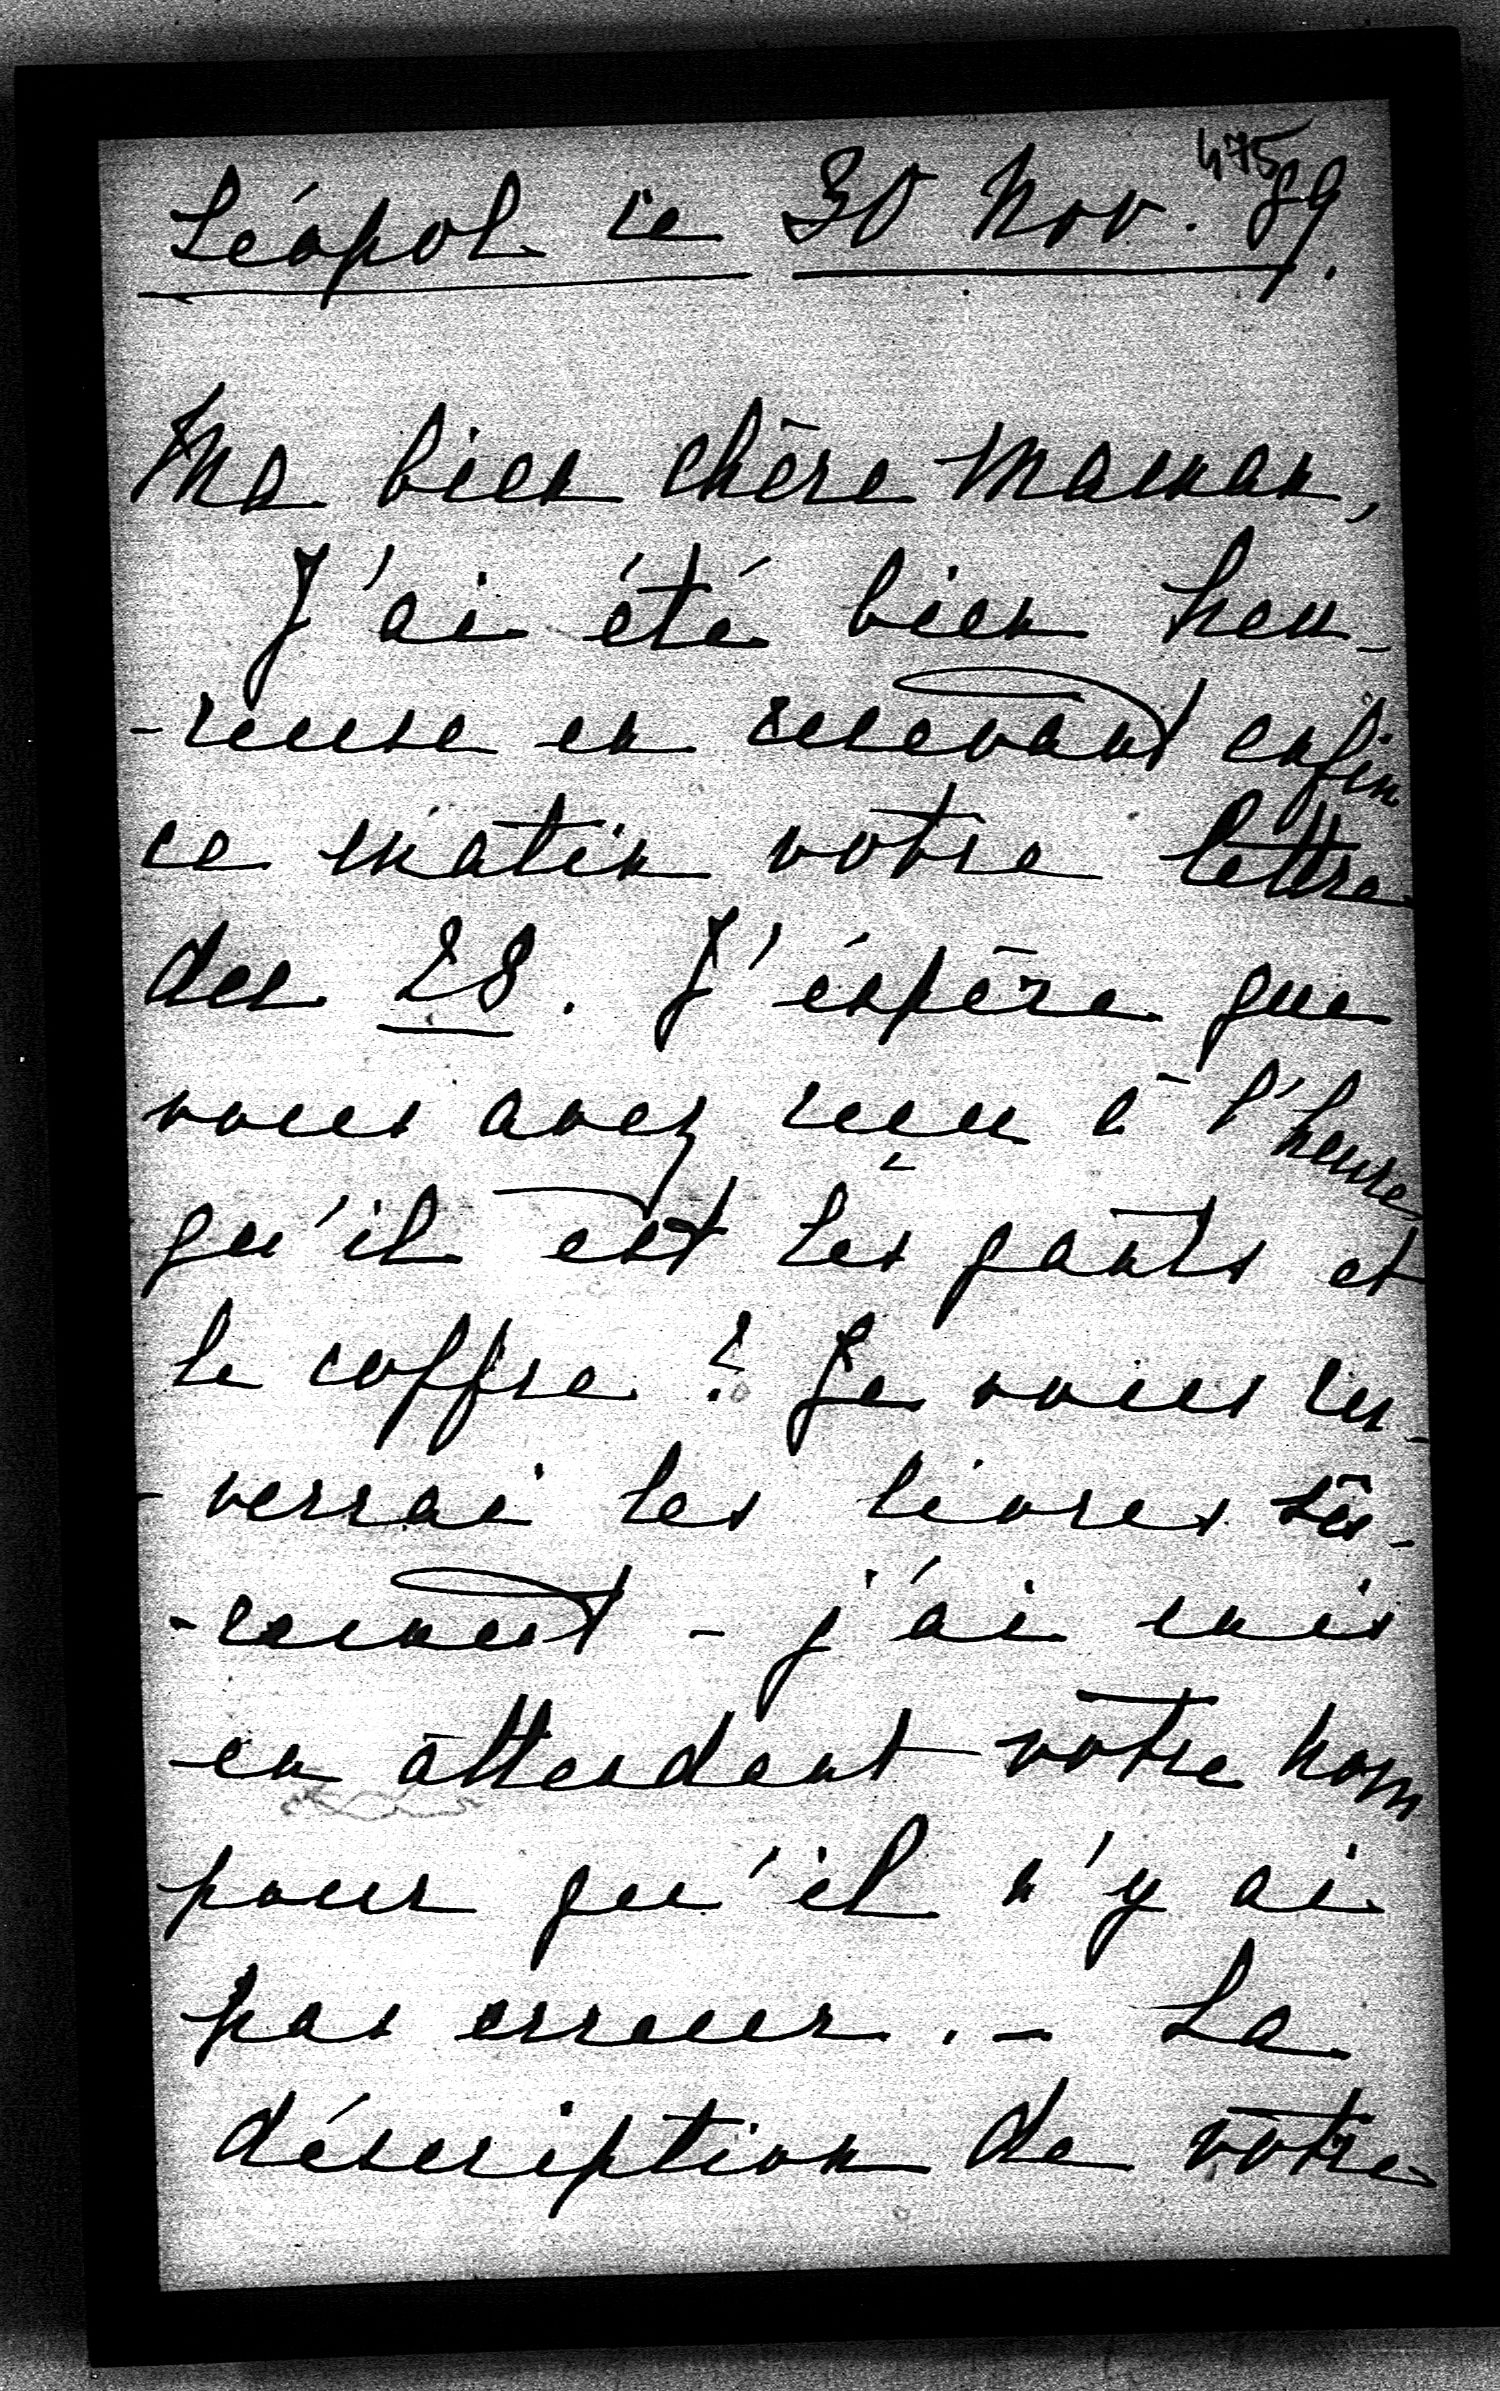 475
Léopol ce 30 Nov. 89.
Ma bien chère Maman,
J'ai été bien heu-
-reuse en recevant enfin
ce matin votre lettre
du 28. J'éspère que
vous avez reçu à l'heure
qu'il est les gants et
le coffre? Je vous en-
-verrai les livres sû-
-rement - j'ai mis
en attendant votre nom
pour qu'il n'y ai
pas erreur. - La
déscription de votre